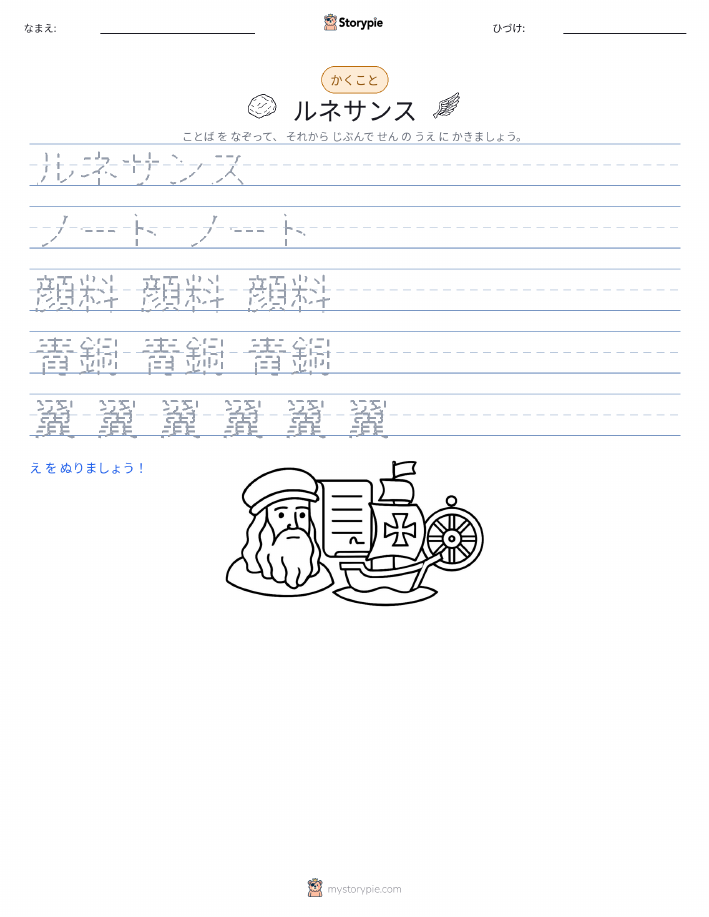 なまえ:
Storypie
ひづけ:
かくこと
ルネサンス
ことば を なぞって、 それから じぶんで せん の うえ に かきましょう。
ルネサンス
ノート ノート
顔料 顔料 顔料
青銅 青銅 青銅
翼 翼 翼 翼 翼 翼
え を ぬりましょう！
mystorypie.com